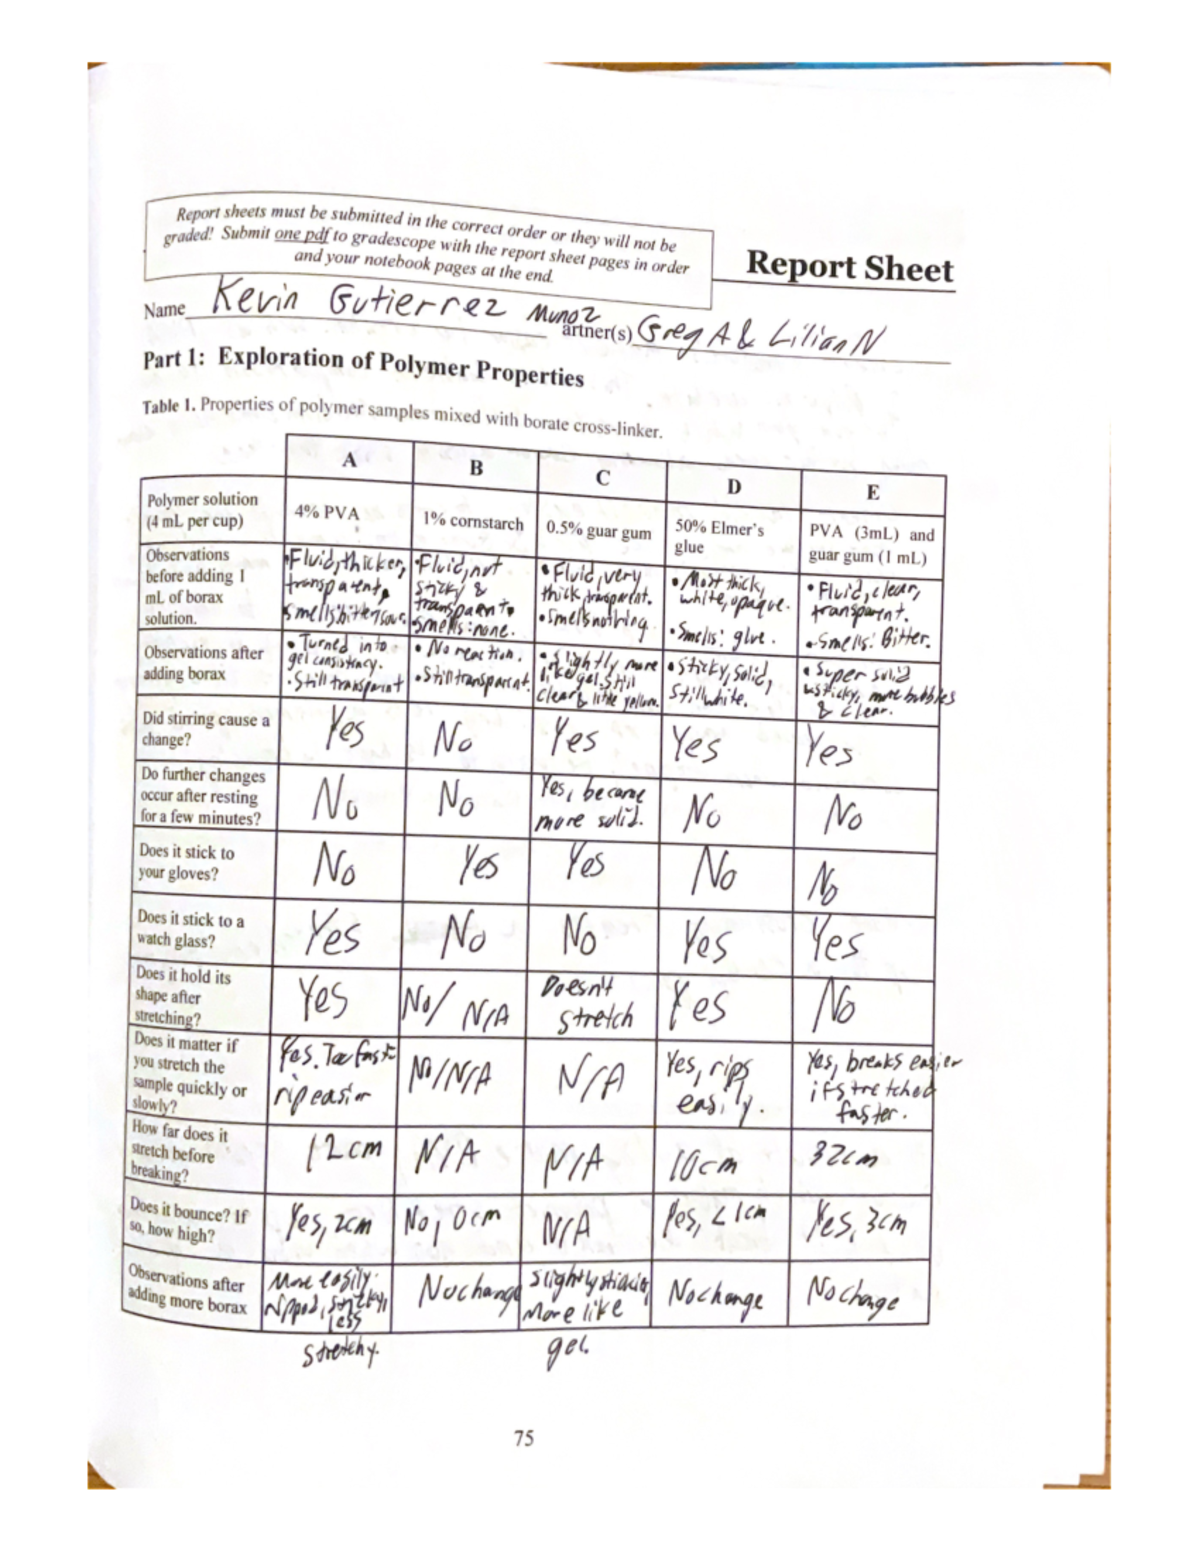 Report sheets must be submitted in the correct order or they will not be
graded! Submit one pdf to gradescope with the report sheet pages in order
and your notebook pages at the end.
Report Sheet
Name Kevin Gutierrez Munoz artner(s) Greg A & Lilian N
Part 1: Exploration of Polymer Properties
Table 1. Properties of polymer samples mixed with borate cross-linker.
A B C D E
Polymer solution
(4 mL per cup)
4% PVA
1% cornstarch
0.5% guar gum
50% Elmer's
glue
PVA (3mL) and
guar gum (1 mL)
Observations
before adding 1
mL of borax
solution.
•Fluid, thicker,
transparent,
smells: bitter/sour
•Fluid, not
sticky &
transparent,
smells: none.
•Fluid, very
thick, transparent.
•Smells nothing.
•Most thick,
white, opaque.
•Smells: glue.
•Fluid, clear,
transparent.
•Smells: Bitter.
Observations after
adding borax
•Turned into
gel consistancy.
•Still transparint
•No reaction.
•Still transparent.
•Slightly more
like gel. Still
clear & little yellow.
•Sticky, Solid,
Still white.
•Super solid
&sticky, more bubbles
& clear.
Did stirring cause a
change?
Yes No Yes Yes Yes
Do further changes
occur after resting
for a few minutes?
No
No
Yes, became
more solid.
No
No
Does it stick to
your gloves?
No Yes Yes No No
Does it stick to a
watch glass?
Yes No No Yes Yes
Does it hold its
shape after
stretching?
Yes
No/ N/A
Doesn't
stretch
Yes
No
Does it matter if
you stretch the
sample quickly or
slowly?
Yes. Too fast
rip easier
No/N/A
N/A
Yes, rips
easily.
Yes, breaks easier
if stretched
faster.
How far does it
stretch before
breaking?
12cm N/A N/A 10cm 32cm
Does it bounce? If
so, how high?
Yes, 2cm No, 0cm N/A Yes, <1cm Yes, 3cm
Observations after
adding more borax
More easily
less
stretchy.
No change
Slightly stickier,
More like
gel.
No change
No change
75